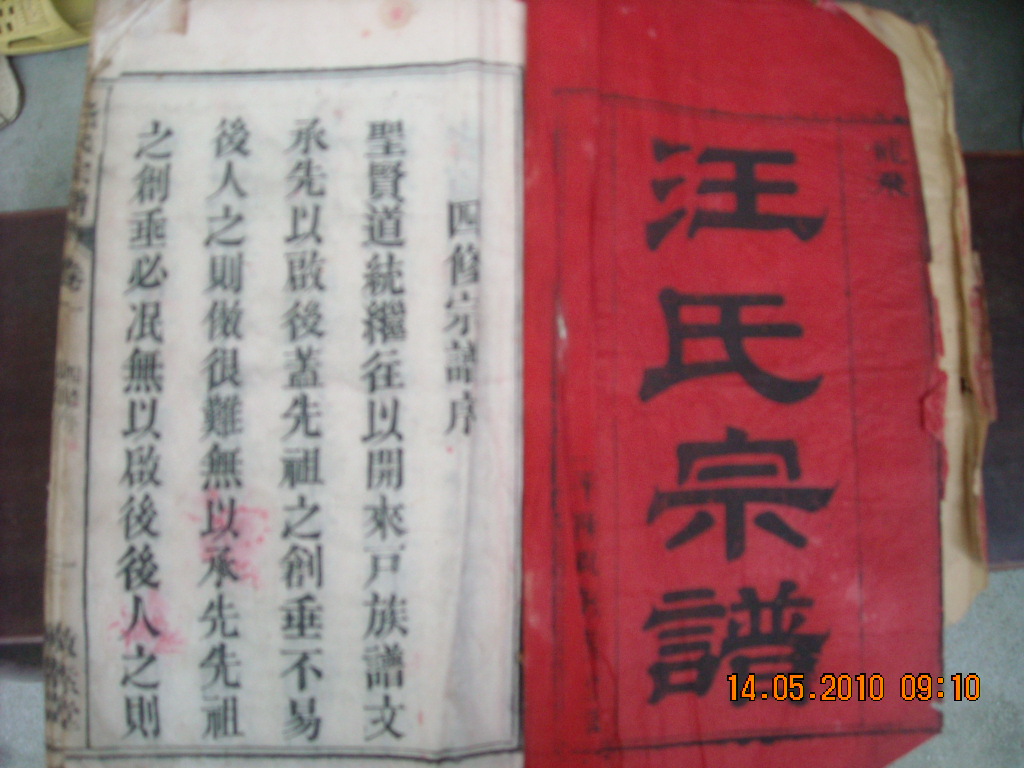 汪氏宗譜
四修宗譜序
聖賢道統繼往以開來戸族譜支
承先以啟後蓋先祖之創垂不易
後人之則傚很難無以承先先祖
之創垂必泯無以啟後後人之則
14.05.2010 09:10